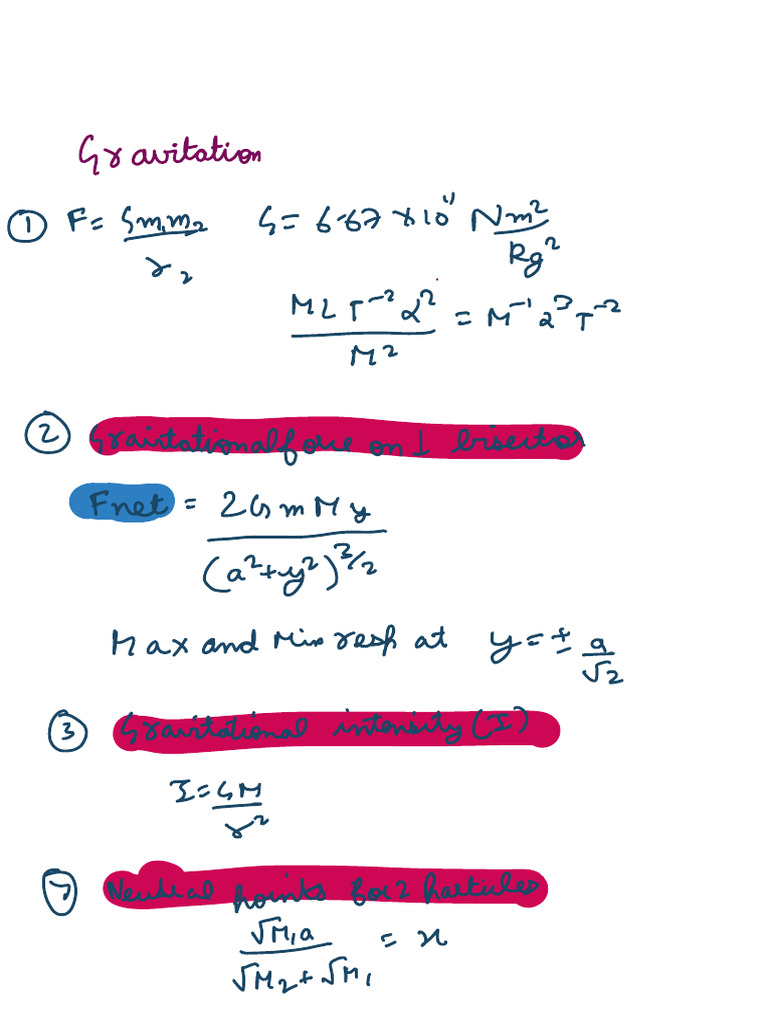 Gravitation
① F = Gm₁m₂ / r₂ G = 6.67 × 10¹¹ Nm² / Kg²
MLT⁻²L² / M² = M⁻¹L³T⁻²
② Grairtational force on ⊥ bisector
Fnet = 2GmMy / (a²+y²)^3/2
Max and Min resp at y = ± a/√2
③ Gravitational intensity (I)
I = GM / r²
④ Neutral points for 2 particles
√M₁a / √M₂+√M₁ = x